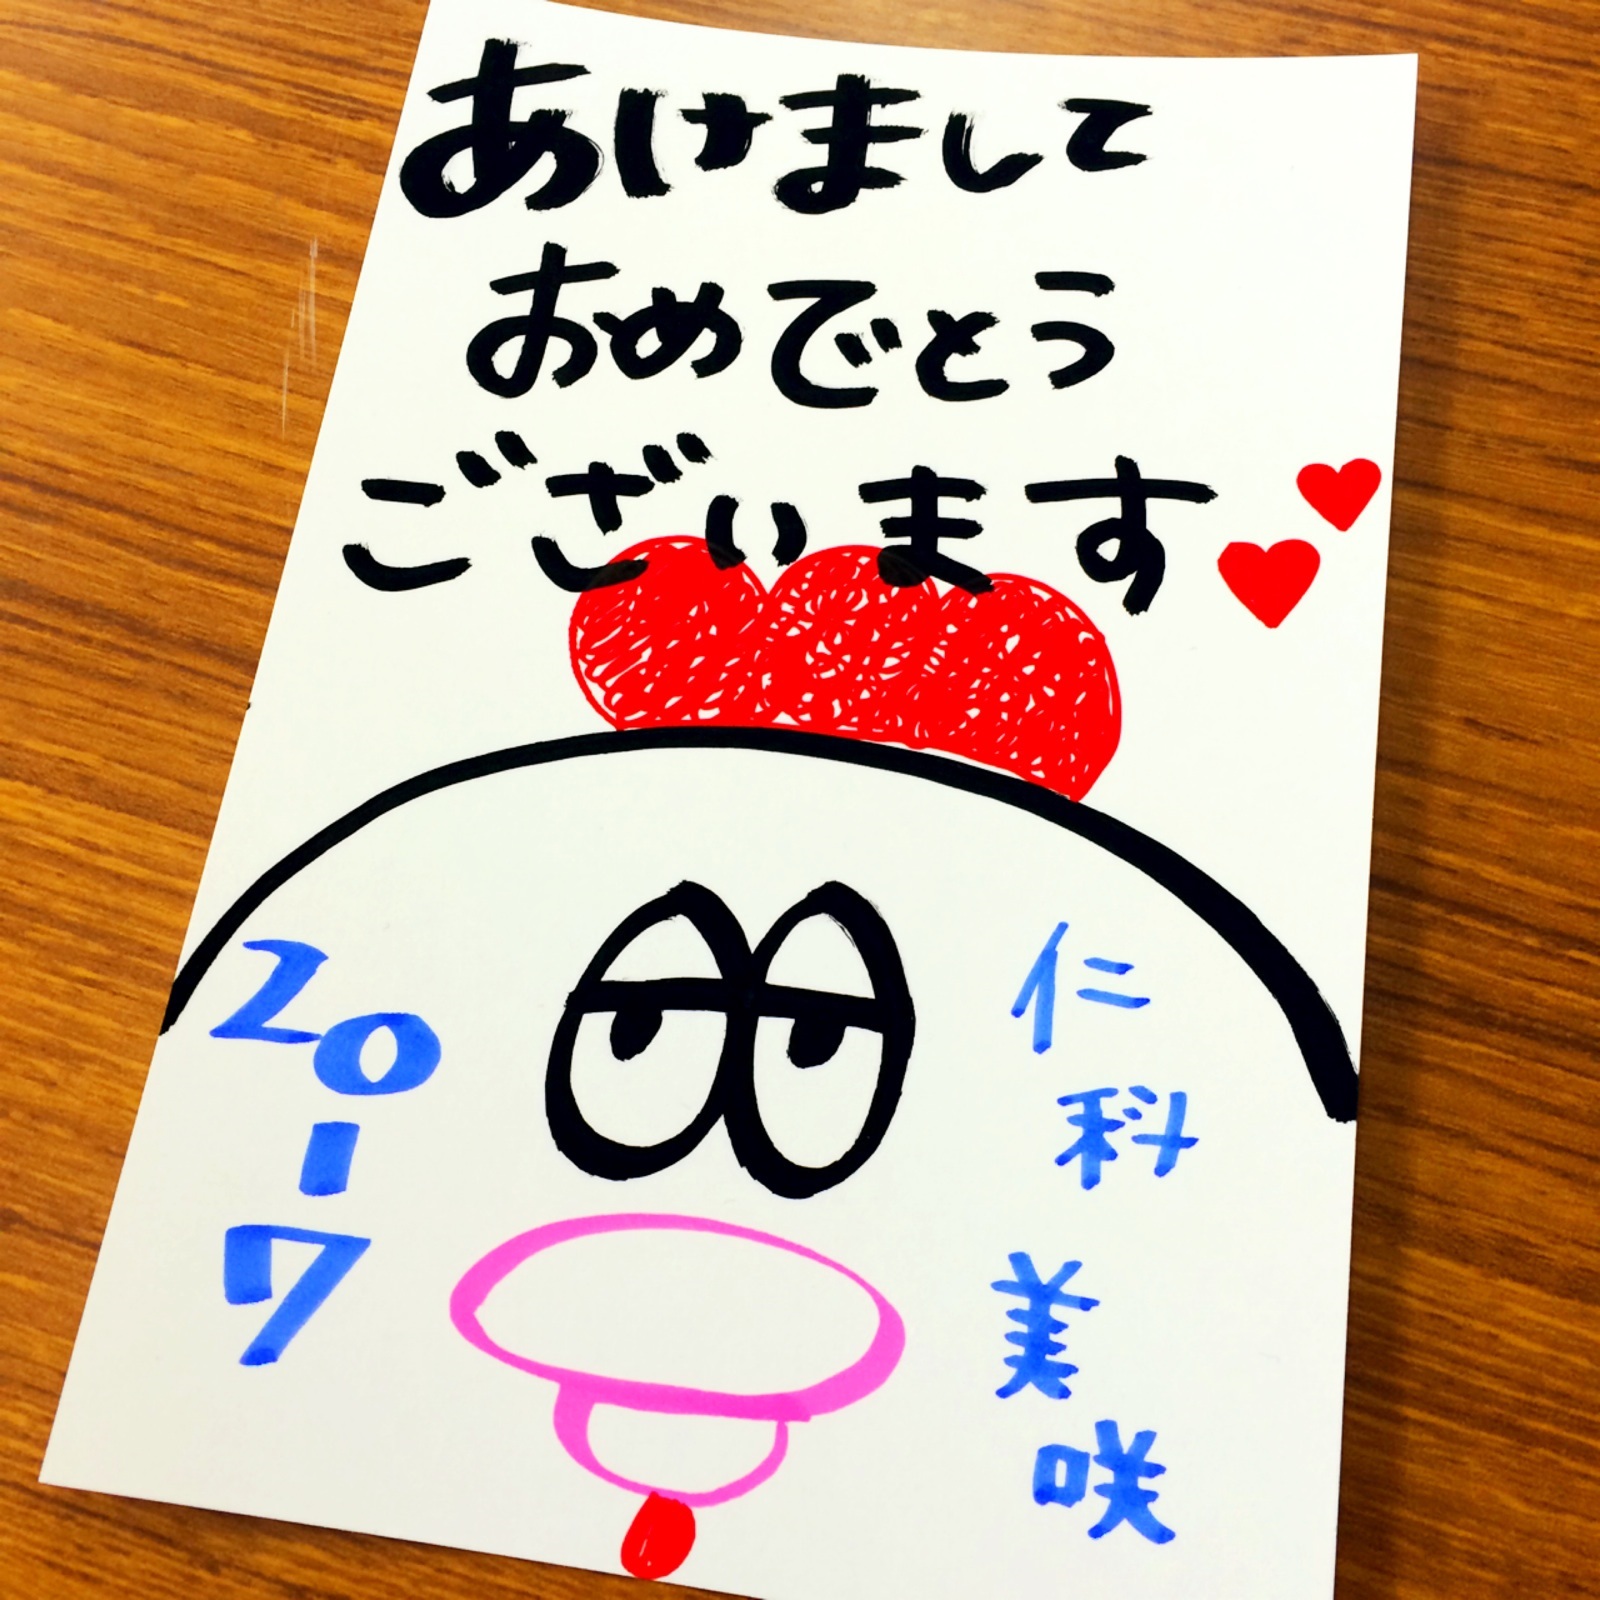 あけまして
おめでとう
ございます
2017
仁科美咲